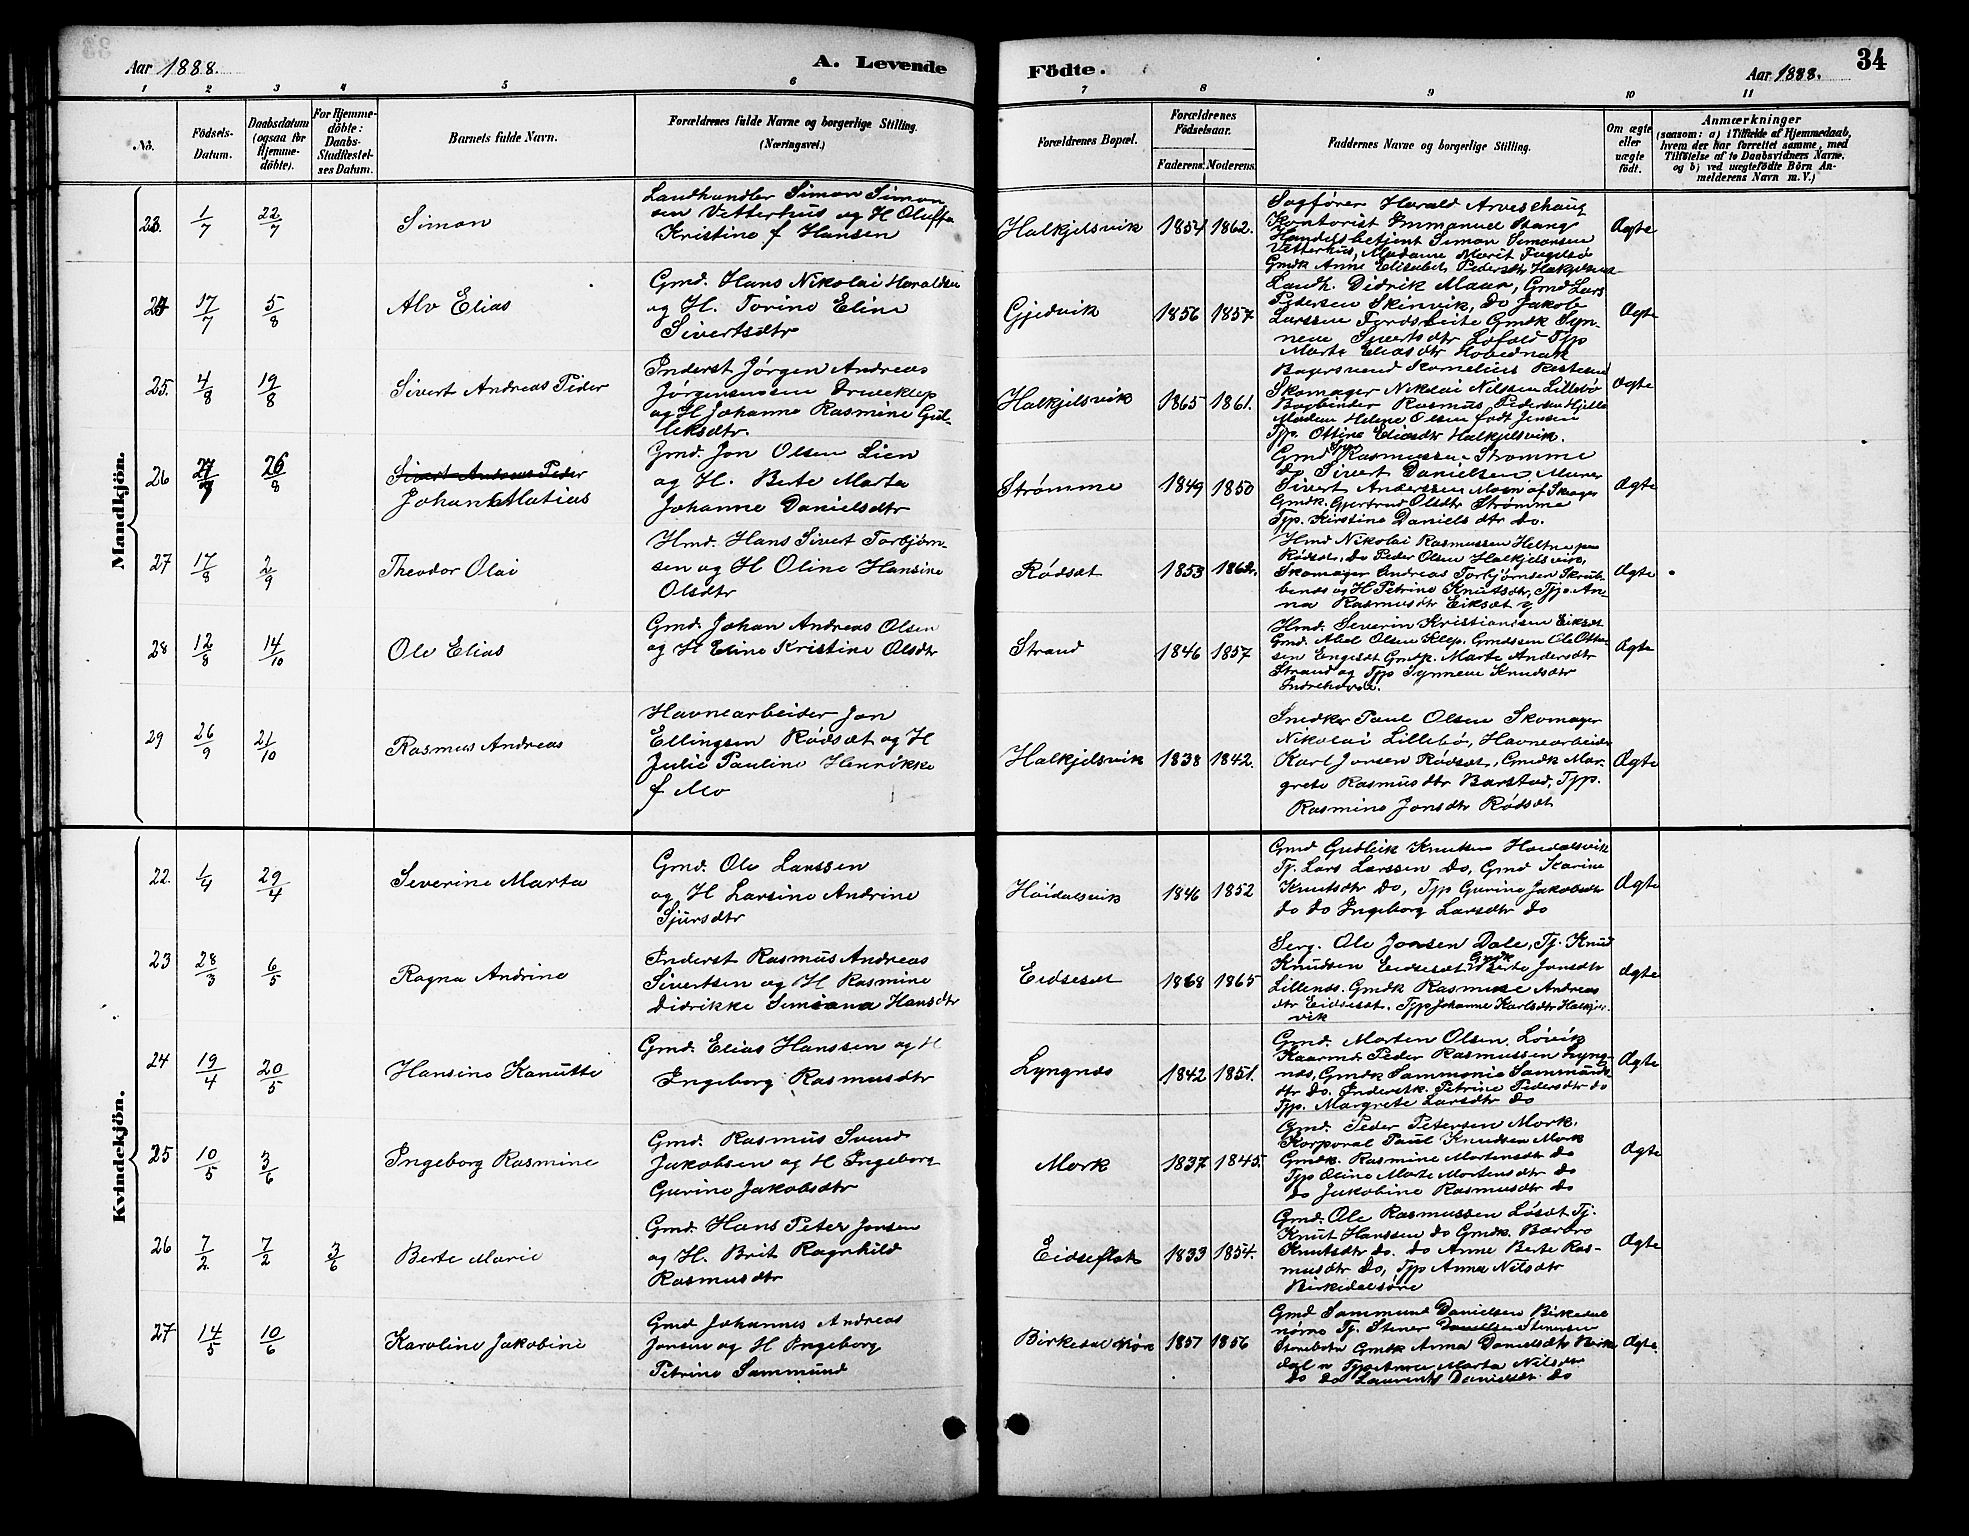 Aar 1888.
A. Levende
Födte.
Aar 1888.
34
1 2 3 4 5 6 7 8 9 10 11
No.
Födsels-
Datum.
Daabsdatum
(ogsaa for
Hjemme-
döbte).
For Hjemme-
döbte:
Daabs-
Stadfæstel-
ses Datum.
Barnets fulde Navn.
Forældrenes fulde Navne og borgerlige Stilling.
(Næringsvei.)
Forældrenes Bopæl.
Forældrenes
Födselsaar.
Faderens. Moderens.
Faddernes Navne og borgerlige Stilling.
Om ægte
eller
uægte
födt.
Anmærkninger
(saasom: a) i Tilfælde af Hjemmedaab,
hvem der har forrettet samme, med
Tilföielse af to Daabsvidners Navne,
og b) ved uægtefödte Börn An-
melderens Navn m. V.)
Mandkjön.
23. 1/7 22/7 Simon
Landhandler Simon Simon
sen Vetterhus og H Oluffa
Kristine f Hansen
Halkjelsvik 1854 1862.
Sagfører Harald Arveschaug
Kontorist Emmanuel Stang
Handelsbetjent Simon Simonsen
Vetterhus, Madame Marit Fuglsø
Gmdk Anne Elisabet Pedersdtr Halkjelsvik
Ægte
24 17/7 5/8 Alv Elias
Gmd. Hans Nikolai Haraldsen
og H. Torine Eline
Sivertsdtr
Gjedvik 1856 1857.
Landh. Didrik Maar, Gmd Lars
Pedersen Skinvik, Do Jakob
Larssen Fyrdsbeite Gmdk Syn-
neve Sivertsdtr Løfold Tjp
Marte Eliasdtr Hovednak
Ægte
25. 4/8 19/8 Sivert Andreas Peder
Inderst Jørgen Andreas
Jørgensenssen Driveklep
og H Johanne Rasmine Gul-
leksdtr.
Halkjelsvik 1865 1861.
Bagersvend Kornelius
Skomager Nikolai Nilssen Lillebø
Bogbinder Rasmus Pedersen Hjelle
Madam Helene Olsen født Jensen
Tjp. Ottine Eliasdtr Halkjelsvik.
Ægte
26 26/8 Sivert Andreas Peder
Johan Matias
Gmd. Jon Olsen Lien
og H. Berte Marta
Johanne Danielsdtr
Strømme 1849 1850
Gmd Rasmussen Strømme
do Sivert Danielsen Maner
Sivert Anderssen Moen af Skager
Gmdk. Gjertrud Olsdtr Strømme
Tjp. Kirstine Daniels dtr do.
Ægte
27 17/8 2/9 Theodor Olai
Hmd. Hans Sivert Torbjørn-
sen og H Oline Hansine
Olsdtr
Rødsæt 1853 1862.
Hmd Nikolai Rasmussen Heltne paa
Rødsæt, Do Peder Olsen Halkjelsvik,
Skomager Andreas Torbjørnsen Skrub-
benes og H Petrine Knutsdtr, Tjp. An-
na Rasmusdtr Eiksæt
Ægte
28 12/8 14/10 Ole Elias
Gmd. Johan Andreas Olsen
og H Eline Kristine Olsdtr
Strand 1846 1857
Hmd. Severin Kristiansen Eiksæt
Gmd. Abel Olsen Klep. Gmdssen Ole Otte-
sen Engeset Gmdk. Marte Andersdtr
Strand og Tjp Synneve Knudsdtr
Indrehovde.
Ægte
29 26/9 21/10 Rasmus Andreas
Havnearbeider Jon
Ellingsen Rødsæt og H
Julie Pauline Henrikke
f Mo
Halkjelsvik 1838 1842.
Snedker Paul Olsen Skomager
Nikolai Lillebø, Havnearbeider
Karl Jonsen Rødsæt, Gmdk Mar-
grete Rasmusdtr Barstad, Tjp.
Rasmine Jonsdtr Rødsæt
Ægte
Kvindekjön.
22. 1/4 29/4 Severine Marta
Gmd. Ole Larssen
og H Larsine Andrine
Sjursdtr
Høidalsvik 1846 1852
Gmd Gudleik Knutsen Høidalsvik
Tj. Lars Larssen Do, Gmd Karine
Knutsdtr Do, Tjp Gurine Jakobsdtr
do do Ingeborg Larsdtr do
Ægte
23 28/3 6/5 Ragna Andrine
Inderst Rasmus Andreas
Sivertsen og H Rasmine
Didrikke Simiana Hansdtr
Eidseset 1868 1865
Serg. Ole Jonsen Dale, Tj. Knud
Knudsen Eidseset Gmdk Berte Jonsdtr
Lillenes. Gmdk Rasmine Andreas
dtr Eidseset. Tjp Johanne Karlsdtr Halkjels-
vik
Ægte
24 19/4 20/5 Hansine Kanutte
Gmd. Elias Hanssen og H
Ingeborg Rasmusdtr
Lyngnes 1842 1851.
Gmd. Morten Olsen, Løvik
Kaarmd. Peder Rasmussen Lyng-
nes, Gmdk Sammonie Sammunds
dtr do. Inderstk. Petrine Pedersdtr do
Tjp. Margrete Larsdtr Do
Ægte
25 10/5 3/6 Ingeborg Rasmine
Gmd. Rasmus Svend
Jakobsen og H Ingeborg
Gurine Jakobsdtr
Mork 1837 1845.
Gmd. Peder Petersen Mork.
Korporal Paul Knudsen Mork
Gmdk. Rasmine Mortensdtr do
Tjp Oline Marte Mortensdtr do
do Jakobine Rasmusdtr do
Ægte
26 7/2 7/2 3/6 Berte Marie
Gmd. Hans Peter Jonsen
og H. Brit Ragnhild
Rasmusdtr
Eidseflot 1833 1854.
Gmd. Ole Rasmussen Løset Tj.
Knut Hanssen do Gmdk. Barbro
Knutsdtr do. do Anne Berte Ras-
musdtr Do, Tjp Anna Nilsdtr
Birkedalsøre
Ægte
27 14/5 10/6 Karoline Jakobine
Gmd Johannes Andreas
Jonsen og H Ingeborg
Petrine Sammund
Birkedal nøre 1857 1856
Gmd Sammund Danielsen Birkedal
nørne Tj. Stener Danielsen Stenersen
Storebotn Gmdk Anna Danielsdtr Birke
dal n Marta Nilsdtr
Do do Laurents Danielsdtr. do
Ægte